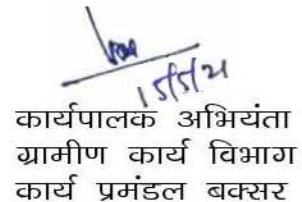 15/5/21
कार्यपालक अभियंता
ग्रामीण कार्य विभाग
कार्य प्रमंडल बक्सर